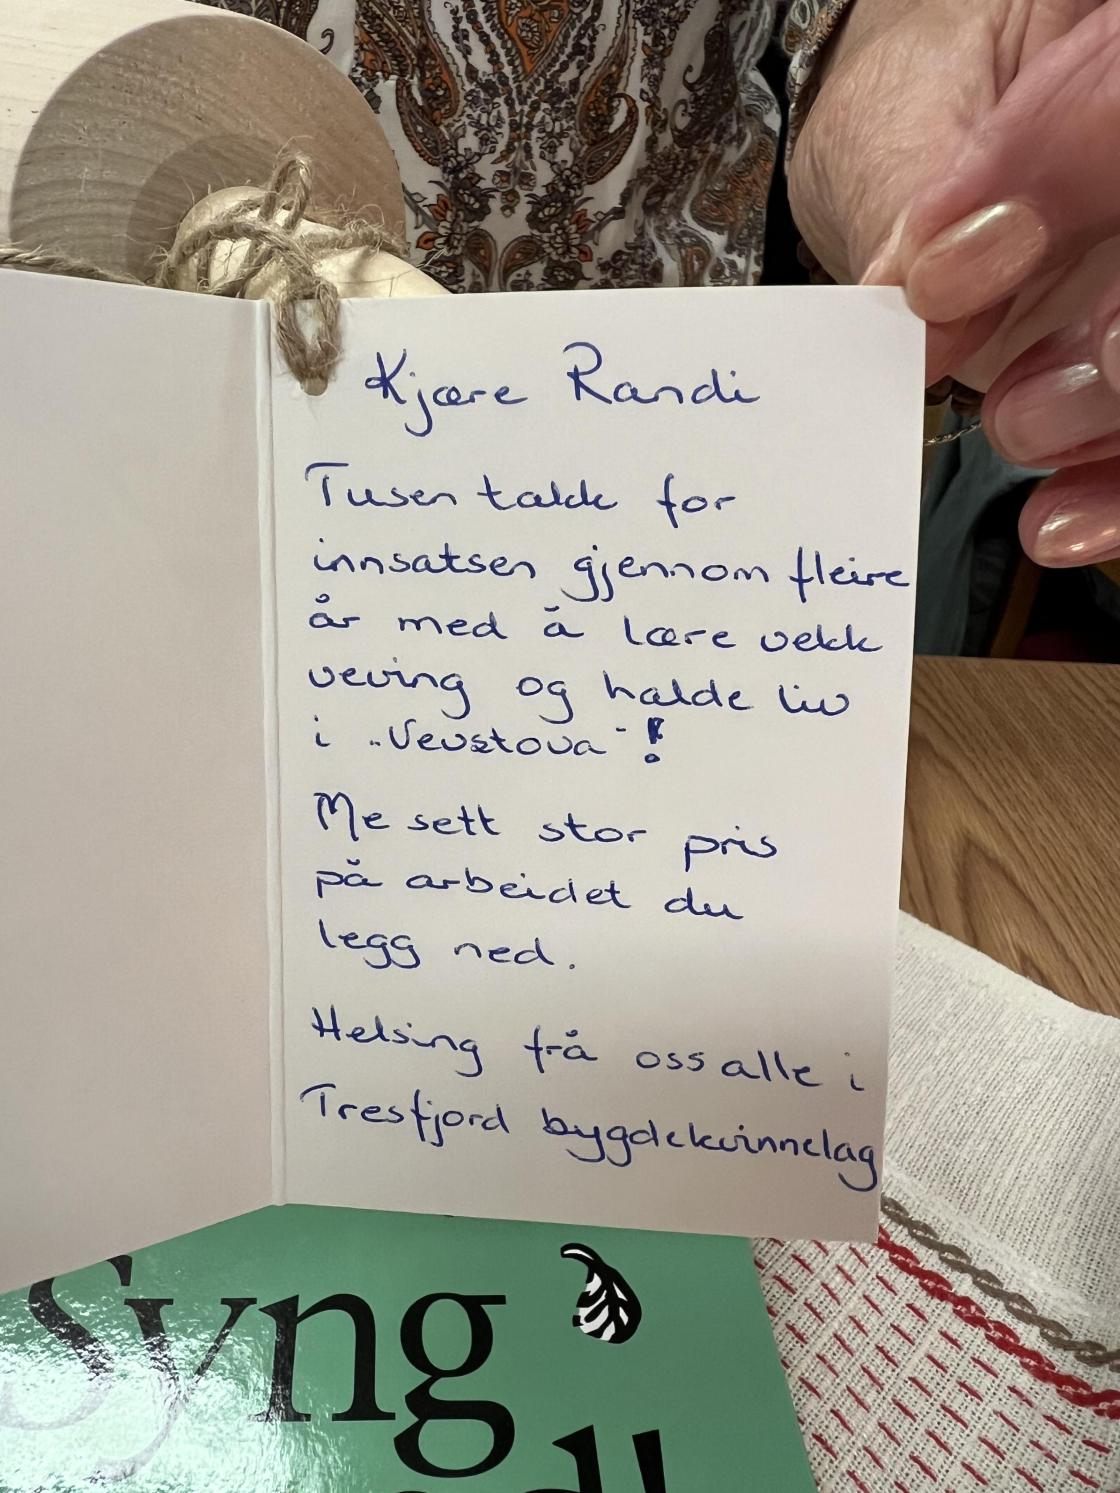 Kjære Randi
Tusen takk for
innsatsen gjennom fleire
år med å lære vekk
veving og halde liv
i „Vevstova“!
Me sett stor pris
på arbeidet du
legg ned.
Helsing frå oss alle i
Tresfjord bygdekvinnelag
Syng